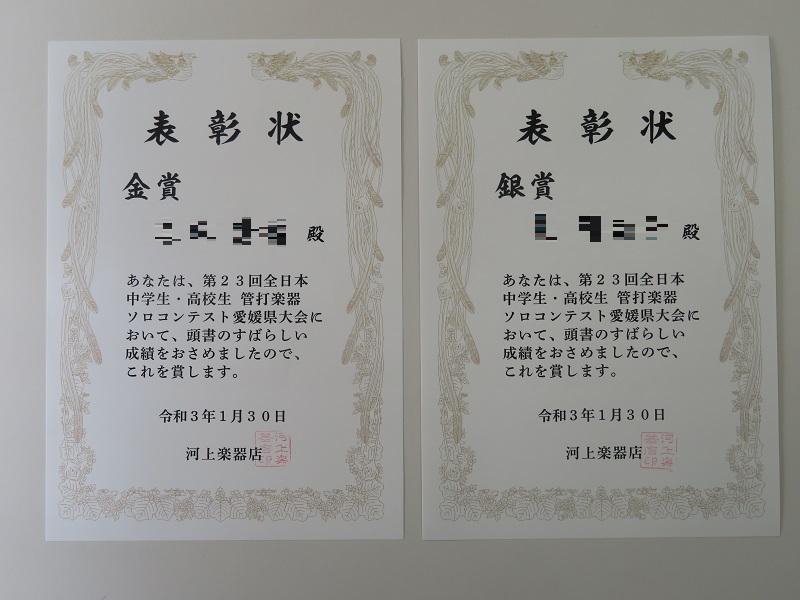 表彰状
金賞
殿
あなたは、第２３回全日本
中学生・高校生 管打楽器
ソロコンテスト愛媛県大会に
おいて、頭書のすばらしい
成績をおさめましたので、
これを賞します。
令和３年１月３０日
河上楽器店
表彰状
銀賞
殿
あなたは、第２３回全日本
中学生・高校生 管打楽器
ソロコンテスト愛媛県大会に
おいて、頭書のすばらしい
成績をおさめましたので、
これを賞します。
令和３年１月３０日
河上楽器店